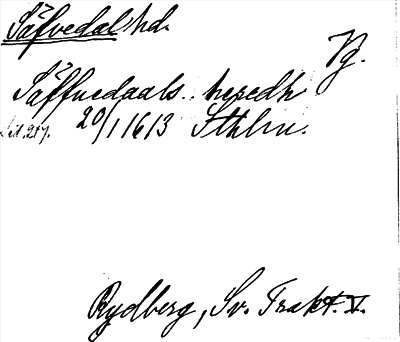 Säfvedals hd.
Vg.
Säffuedaals heredh
Sid. 217. 20/1 1613 Sthlm.
Rydberg, Sv. Trakt. V.